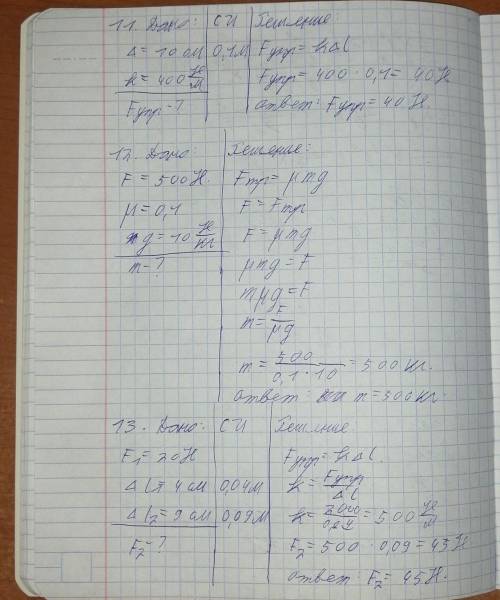 11. Дано: СИ Решение:
Δ = 10 см 0,1м Fупр = kΔl
k = 400 Н/м Fупр = 400 · 0,1 = 40Н
Fупр - ? ответ: Fупр = 40 Н.
12. Дано: Решение:
F = 500Н. Fтр = μmg
μ = 0,1 F = Fтр
g = 10 Н/кг F = μmg
m - ? μmg = F
mμg = F
m = F/μg
m = 500/0,1·10 = 500 кг.
ответ: m = 500 кг.
13. Дано: СИ Решение:
F1 = 20Н Fупр = kΔl.
Δl = 4 см 0,04м k = Fупр/Δl
Δl2 = 9 см 0,09м = 500 Н/м
F2 - ? F2 = 500 · 0,09 = 45 Н
ответ: F2 = 45Н.